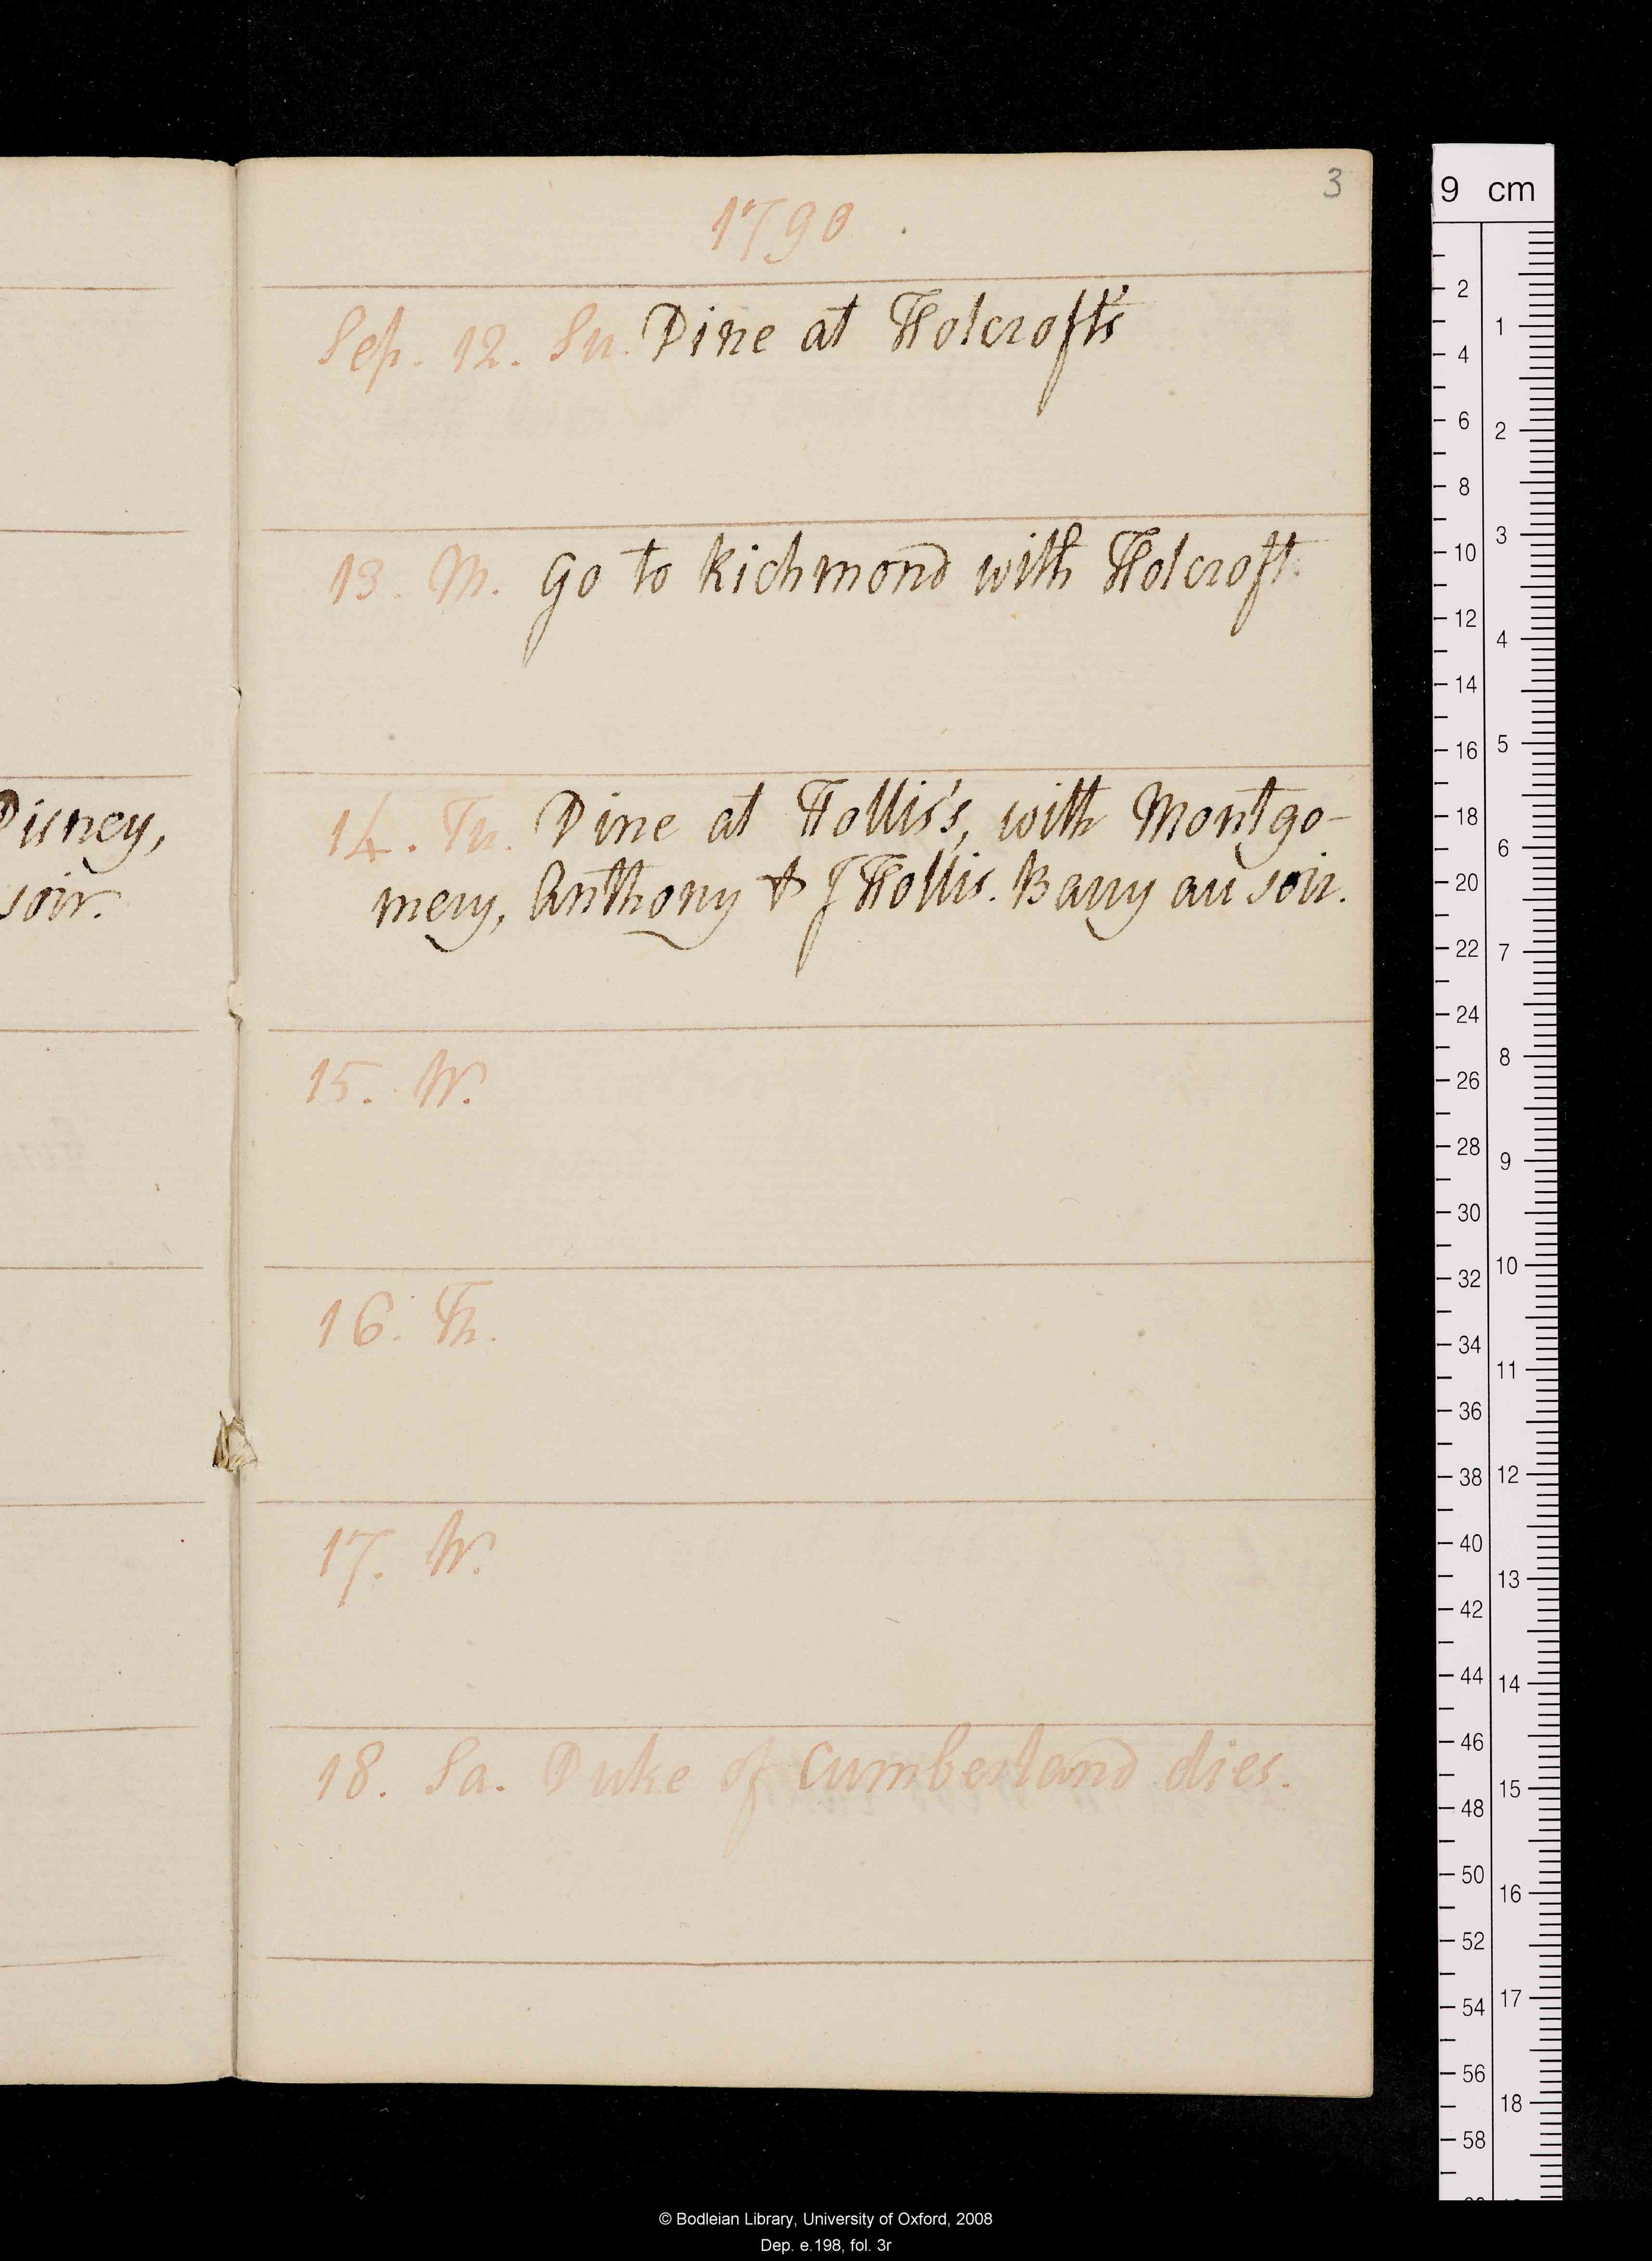 3
1790
Sep. 12. Su. Dine at Holcroft's
13. M. Go to Richmond with Holcroft.
Disney,
14. Tu. Dine at Hollis's, with Montgo-
soir.
mery, Anthony & J Hollis. Barry au soir.
15. W.
16. Th.
17. W.
18. Sa. Duke of Cumberland dies.
9 cm
2
4
6
8
10
12
14
16
18
20
22
24
26
28
30
32
34
36
38
40
42
44
46
48
50
52
54
56
58
1
2
3
4
5
6
7
8
9
10
11
12
13
14
15
16
17
18
© Bodleian Library, University of Oxford, 2008
Dep. e.198, fol. 3r